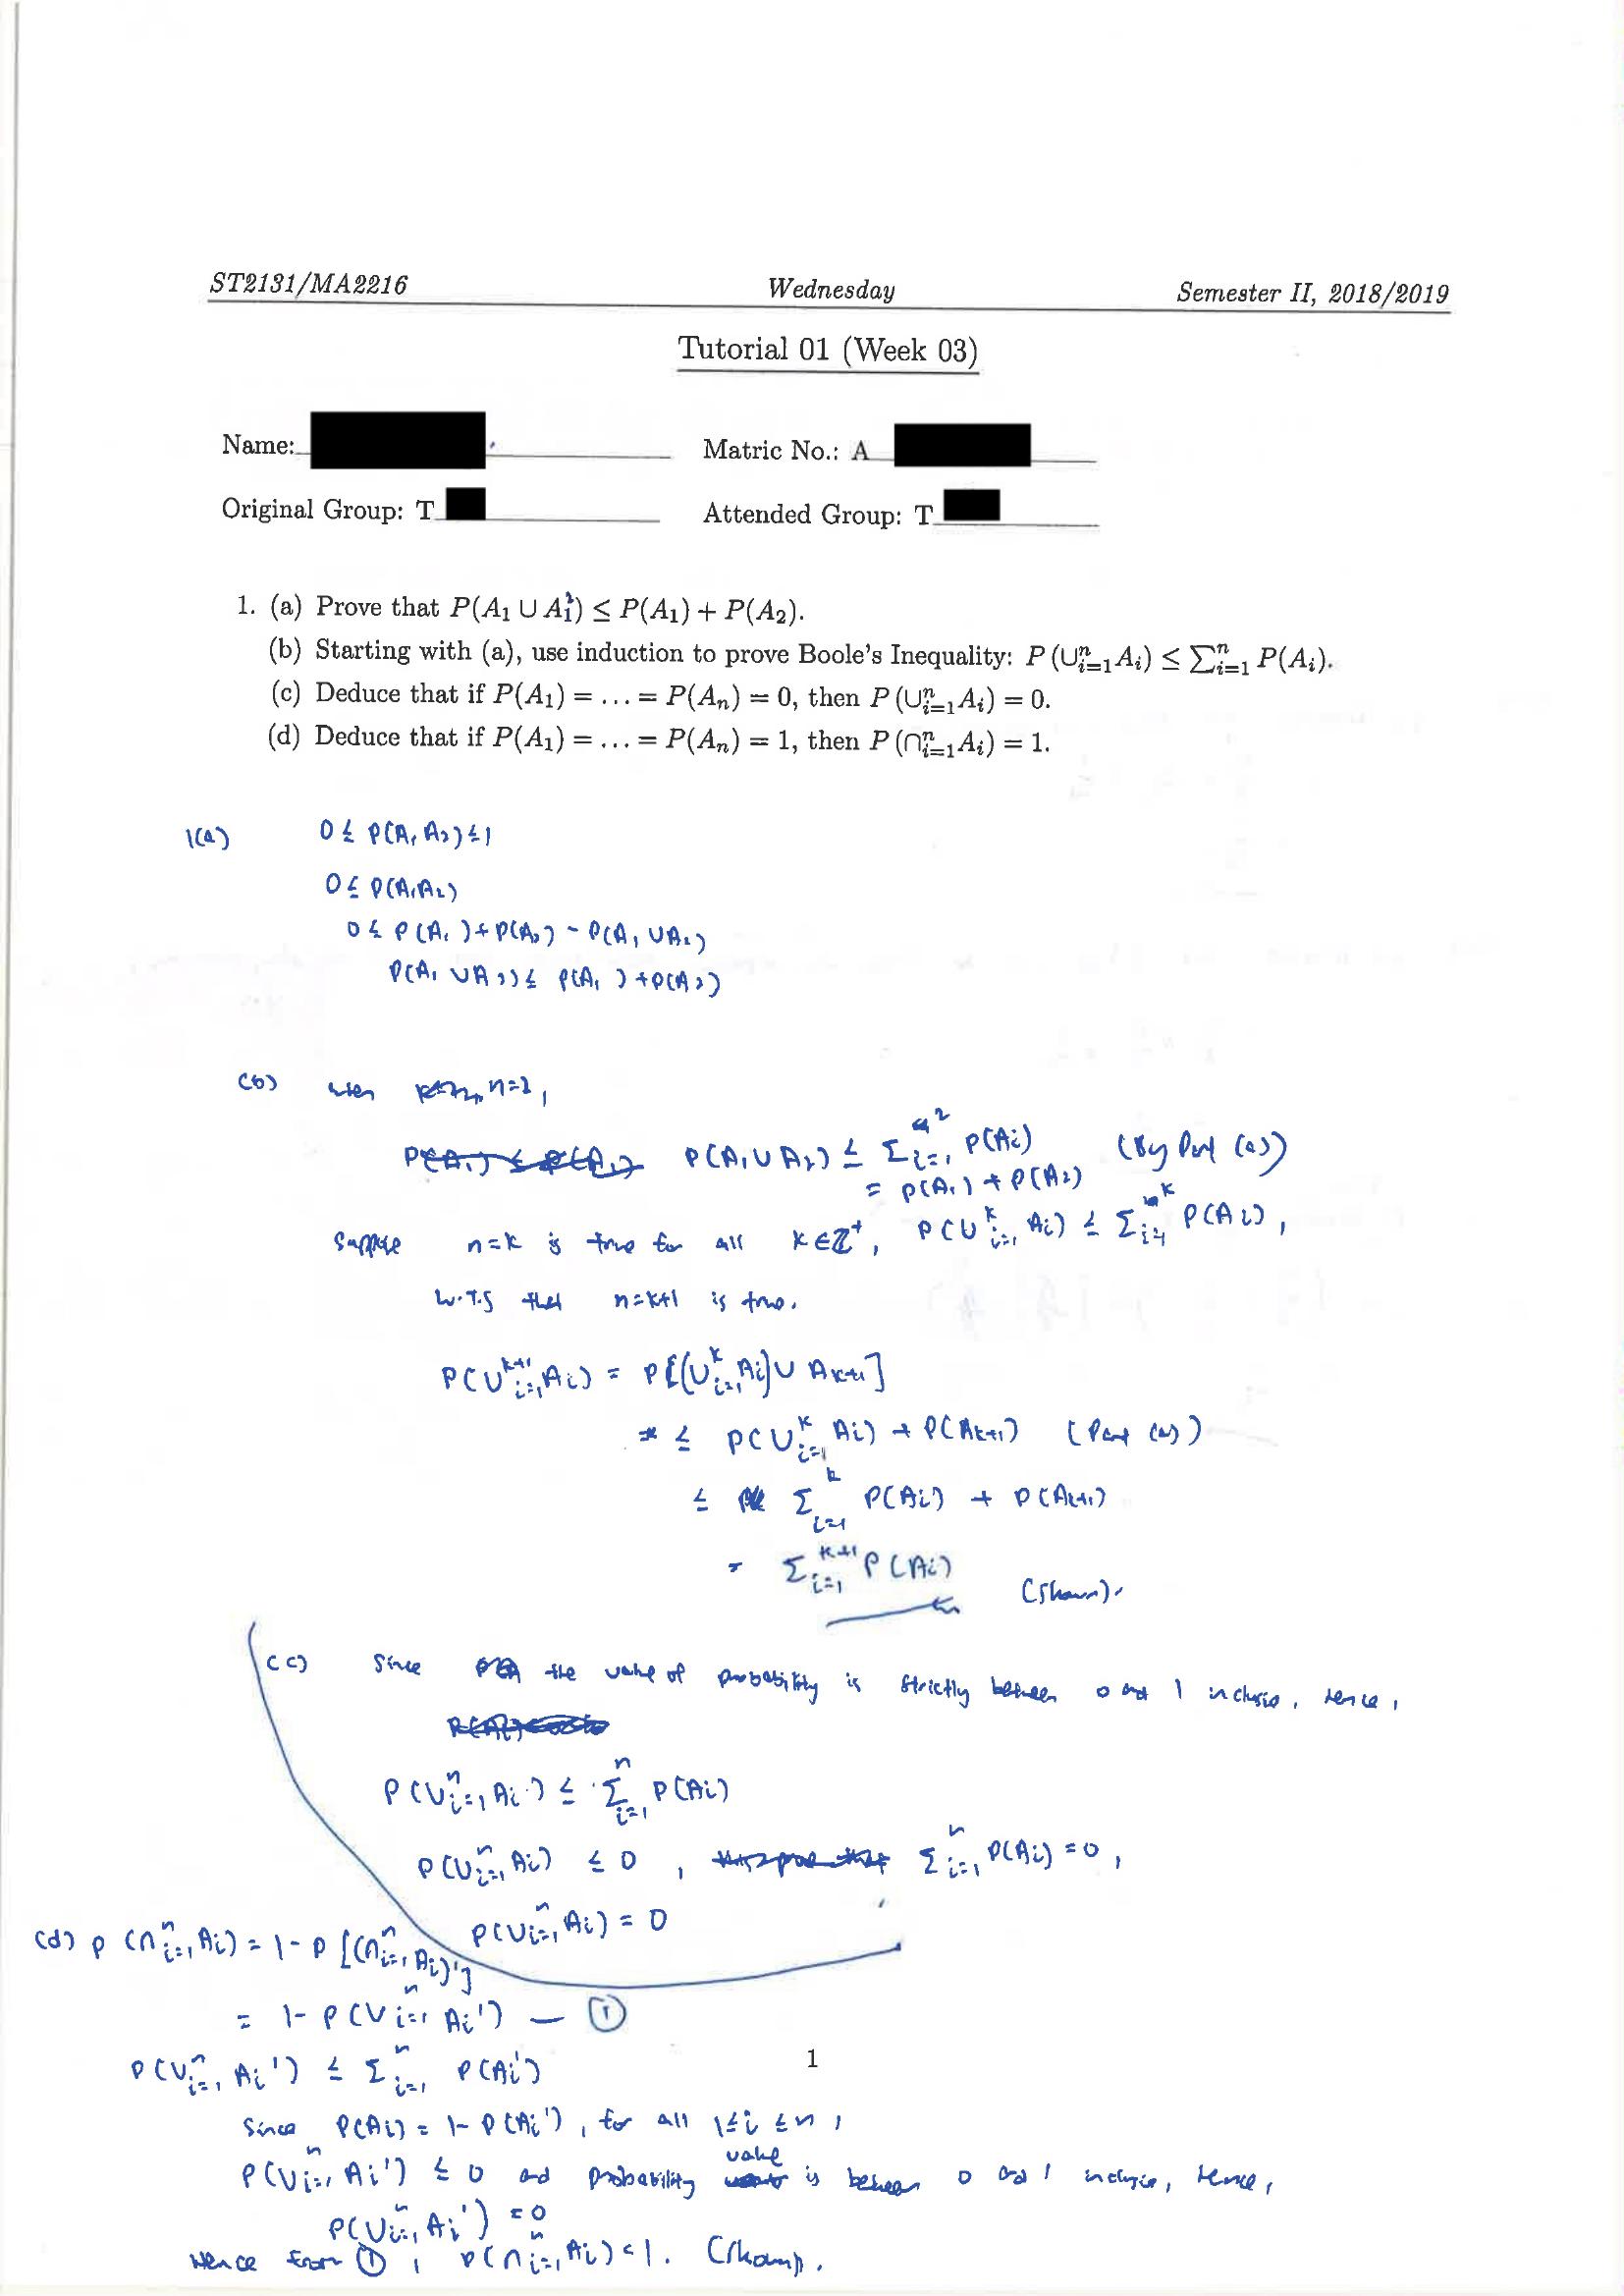 ST2131/MA2216 Wednesday Semester II, 2018/2019
Tutorial 01 (Week 03)
Name: Matric No.: A
Original Group: T Attended Group: T
1. (a) Prove that P(A₁ ∪ A₂) ≤ P(A₁) + P(A₂).
(b) Starting with (a), use induction to prove Boole's Inequality: P (∪ⁿᵢ₌₁Aᵢ) ≤ ∑ⁿᵢ₌₁ P(Aᵢ).
(c) Deduce that if P(A₁) = ... = P(Aₙ) = 0, then P (∪ⁿᵢ₌₁Aᵢ) = 0.
(d) Deduce that if P(A₁) = ... = P(Aₙ) = 1, then P (∩ⁿᵢ₌₁Aᵢ) = 1.
1(a) 0 ≤ P(A₁A₂) ≤ 1
0 ≤ P(A₁A₂)
0 ≤ P(A₁) + P(A₂) - P(A₁ ∪ A₂)
P(A₁ ∪ A₂) ≤ P(A₁) + P(A₂)
(b) when n=2,
P(A₁ ∪ A₂) ≤ ∑²ᵢ₌₁ P(Aᵢ) (By Part (a))
= P(A₁) + P(A₂)
Suppose n=k is true for all k ∈ ℤ⁺, P(∪ᵏᵢ₌₁ Aᵢ) ≤ ∑ᵏᵢ₌₁ P(Aᵢ),
W.T.S that n=k+1 is true.
P(∪ᵏ⁺¹ᵢ₌₁ Aᵢ) = P[(∪ᵏᵢ₌₁ Aᵢ) ∪ Aₖ₊₁]
≤ P(∪ᵏᵢ₌₁ Aᵢ) + P(Aₖ₊₁) (Part (a))
≤ ∑ᵏᵢ₌₁ P(Aᵢ) + P(Aₖ₊₁)
= ∑ᵏ⁺¹ᵢ₌₁ P(Aᵢ) (Shown).
(c) Since the value of probability is strictly between 0 and 1 inclusive, hence,
P(∪ⁿᵢ₌₁ Aᵢ) ≤ ∑ⁿᵢ₌₁ P(Aᵢ)
P(∪ⁿᵢ₌₁ Aᵢ) ≤ 0 , ∑ⁿᵢ₌₁ P(Aᵢ) = 0,
P(∪ⁿᵢ₌₁ Aᵢ) = 0
(d) P(∩ⁿᵢ₌₁ Aᵢ) = 1 - P[(∩ⁿᵢ₌₁ Aᵢ)']
= 1 - P(∪ⁿᵢ₌₁ Aᵢ') — ①
P(∪ⁿᵢ₌₁ Aᵢ') ≤ ∑ⁿᵢ₌₁ P(Aᵢ')
Since P(Aᵢ) = 1 - P(Aᵢ'), for all 1 ≤ i ≤ n,
P(∪ⁿᵢ₌₁ Aᵢ') ≤ 0 and probability value is between 0 and 1 inclusive, hence,
P(∪ⁿᵢ₌₁ Aᵢ') = 0
Hence from ①, P(∩ⁿᵢ₌₁ Aᵢ) = 1. (Shown).
1